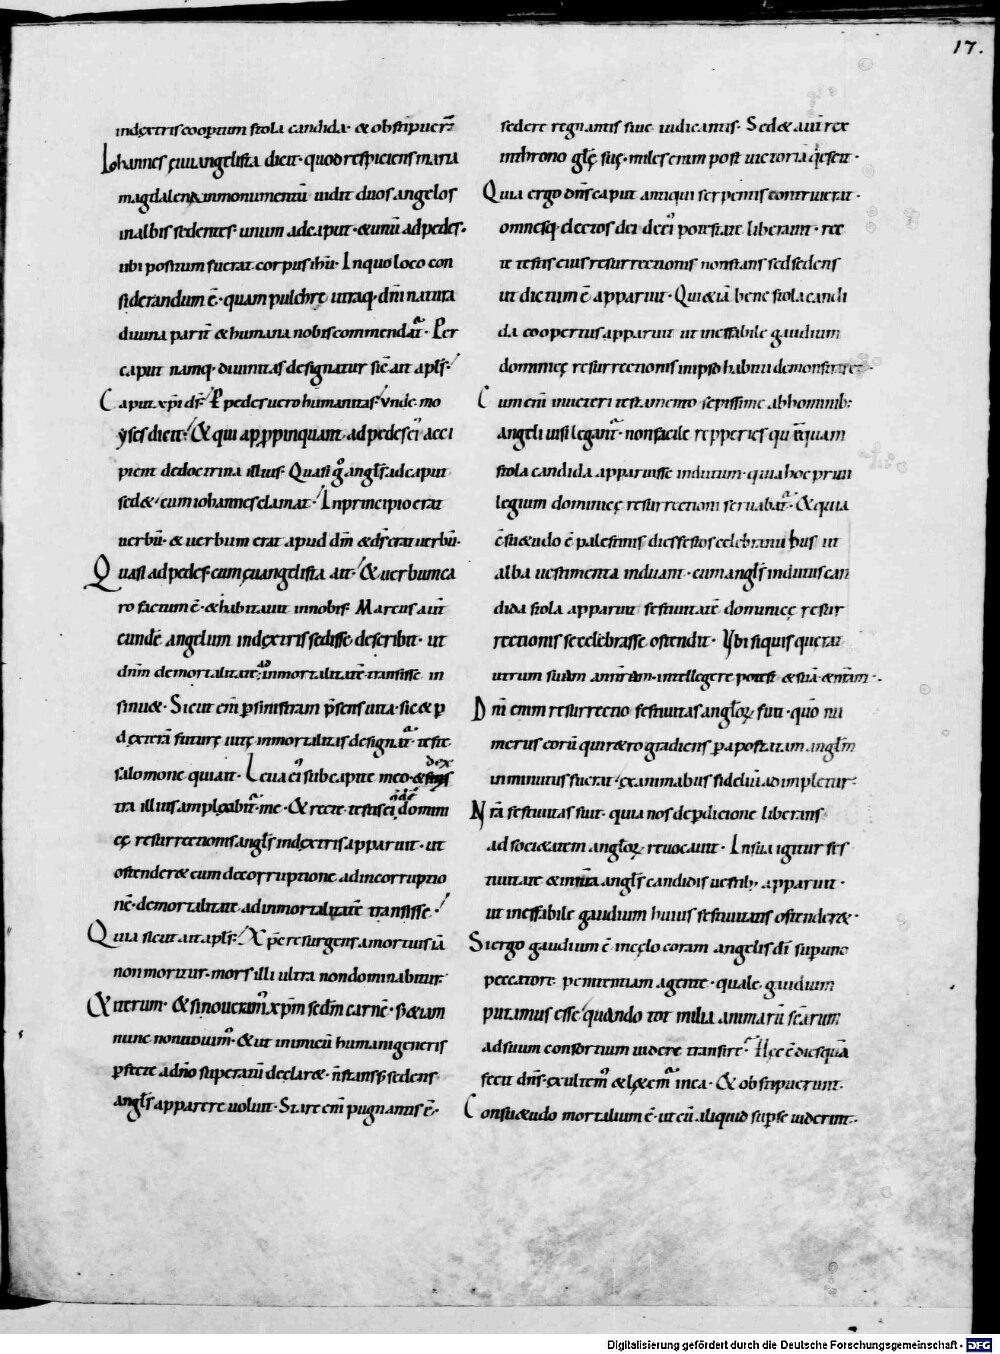 17.
indextris coop̄tum stola candida · & obstipuer̄
Iohannes ęuuangelista dicit · quod respiciens maria
magdalena inmonumentū uidit duos angelos
inalbis sedentes · unum adcaput · & unū ad pedes ·
ubi positum fuerat corpus ihū · Inquo loco con
siderandum ē · quam pulchre utraq · dn̄i natura
diuina parit̄ & humana nobis commendat̄ · Per
caput namq · diuinitas designatur sic̄ ait apłs ·
Caput xp̄i ds̄ · P pedes uero humanitas · Vnde mo
yses dicit · & qui apppinquant ad pedes ei acci
pient dedoctrina illius · Quasi g̊ angłs adcaput
sed& · cum iohannes clamat · Inprincipio erat
uerbū · & uerbum erat apud dm̄ & ds̄ erat uerbū ·
Quasi ad pedes · cum ęuangelista ait · & uerbum ca
ro factum ē · & habitauit innobis · Marcus aut̄
eundē angelum indextris sedisse describit · ut
dn̄m demortalitate ad inmortalitatē transisse in
sinu& · Sicut em̄ p sinistram p̄sens uita · sic & p
dexterā futurę uitę inmortalitas designat̄ · teste
salomone qui ait · Leua ei' sub capite meo · & dex
tra illius amplęxabit̄ me · & recte testis ei'dē domini
cę resurrectionis angłs indextris apparuit · ut
ostender& eum decorruptione adincorruptio
nē · demortalitate adinmortalitatē transisse ·
Quia sicut ait apłs · Xp̄c resurgens amortuis iā
non moritur · mors illi ultra non dominabitur
& iterum · & si nouerim' xp̄m secdm̄ carnē · s& iam
nunc non nouim' · & ut inimicū humani generis
pstere adn̄o superatū declar& · n̄ stans s; sedens
angłs apparere uoluit · Stare em̄ pugnantis ē ·
sedere regnantis siue iudicantis · Sed & aut̄ rex
inthrono glę̄ suę · miles enim post uictoriā qescit ·
Quia ergo dn̄s caput antiqui serpentis contriuerat ·
omnesq · electos dei de ei' potestate liberauit · rec
te testis eius resurrectionis non stans sed sedens
ut dictum ē apparuit · Qui & iā bene stola candi
da coopertus apparuit ut ineffabile gaudium
dominicę resurrectionis in ipso habitu demonstraret ·
Cum em̄ inueteri testamento sepissime ab hominib;
angeli uisi legant̄ · non facile repperies quēquam
stola candida apparuisse indutum · quia hoc priui
legium dominicę resurrectioni seruabat̄ · & quia
c̄su&udo ē palestinis dies festos celebrantibus ut
alba uestimenta induant · cum angłs indutus can
dida stola apparuit festiuitatē dominicę resur
rectionis se celebrasse ostendit · Vbi si quis querat
utrum suam an nr̄am · intellegere potest & suā & nr̄am ·
Dn̄i enim resurrectio festiuitas angłoꝝ fuit · quō nu
merus eorū qui retrogradiens p apostatam angłm
inminutus fuerat · ex animabus fidelium adimpletur ·
Nr̄a festiuitas fuit · quia nos de pdicione liberans
ad soci&atem angłoꝝ reuocauit · In sua igitur fes
tiuitate & in nr̄a angłs candidis uestib; apparuit ·
ut ineffabile gaudium huius festiuitatis ostender& ·
Si ergo gaudium ē incęlo coram angelis di sup uno
peccatore penitentiam agente · quale gaudium
putamus esse quando tot milia animarū sc̄arum
ad suum consortium uidere transire · Hęc ē dies quā
fecit dn̄s · exultem' & lętem̄ in ea · & obstipuerunt ·
Consu&udo mortalium ē · ut cū aliquid sup se uiderint ·
Digitalisierung gefördert durch die Deutsche Forschungsgemeinschaft - DFG